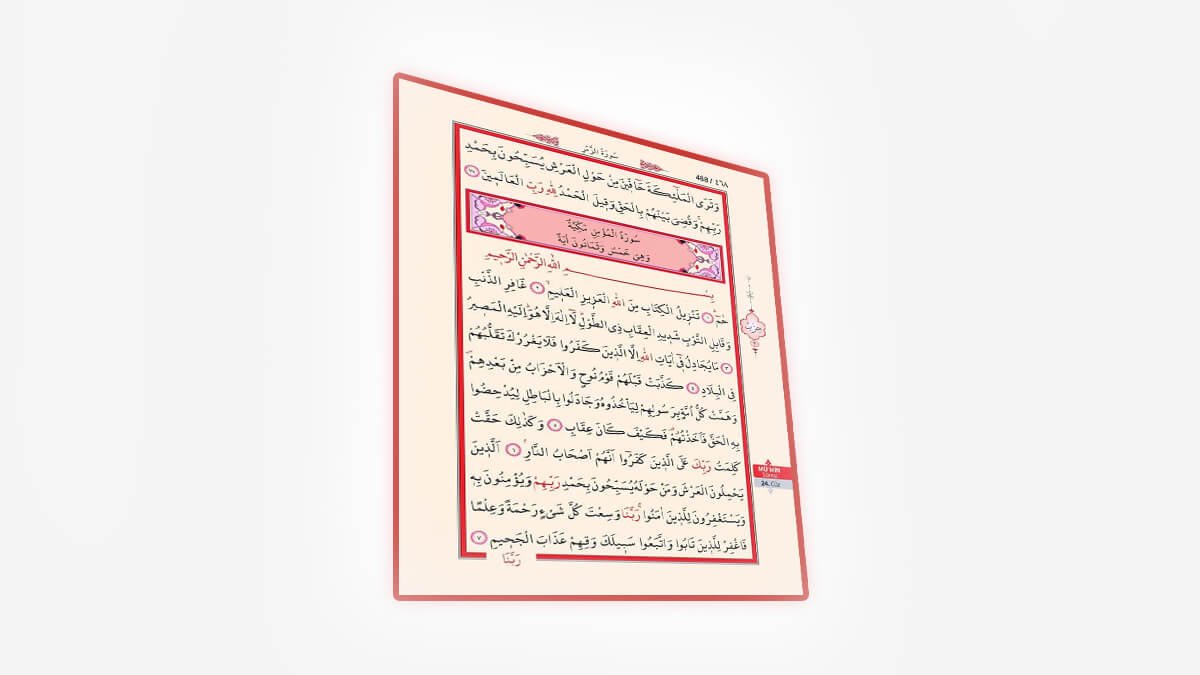 ٤٦٨ / 468
سُورَةُ الزُّمَرِ
وَتَرَى الْمَلٰٓئِكَةَ حَٓافّ۪ينَ مِنْ حَوْلِ الْعَرْشِ يُسَبِّحُونَ بِحَمْدِ
رَبِّهِمْۚ وَقُضِيَ بَيْنَهُمْ بِالْحَقِّ وَق۪يلَ الْحَمْدُ لِلّٰهِ رَبِّ الْعَالَم۪ينَ ﴿٧٥﴾
سُورَةُ الْمُؤْمِنِ مَكِّيَّةٌ
وَهِيَ خَمْسٌ وَثَمَانُونَ اٰيَةً
بِسْمِ اللّٰهِ الرَّحْمٰنِ الرَّح۪يمِ
حٰمٓۚ ﴿١﴾ تَنْز۪يلُ الْكِتَابِ مِنَ اللّٰهِ الْعَز۪يزِ الْعَل۪يمِۙ ﴿٢﴾ غَافِرِ الذَّنْبِ
وَقَابِلِ التَّوْبِ شَد۪يدِ الْعِقَابِ ذِي الطَّوْلِۜ لَٓا اِلٰهَ اِلَّا هُوَۜ اِلَيْهِ الْمَص۪يرُ
﴿٣﴾ مَا يُجَادِلُ ف۪ٓي اٰيَاتِ اللّٰهِ اِلَّا الَّذ۪ينَ كَفَرُوا فَلَا يَغْرُرْكَ تَقَلُّبُهُمْ
فِي الْبِلَادِ ﴿٤﴾ كَذَّبَتْ قَبْلَهُمْ قَوْمُ نُوحٍ وَالْاَحْزَابُ مِنْ بَعْدِهِمْۖ
وَهَمَّتْ كُلُّ اُمَّةٍ بِرَسُولِهِمْ لِيَأْخُذُوهُ وَجَادَلُوا بِالْبَاطِلِ لِيُدْحِضُوا
بِهِ الْحَقَّ فَاَخَذْتُهُمْ۠ فَكَيْفَ كَانَ عِقَابِ ﴿٥﴾ وَكَذٰلِكَ حَقَّتْ
كَلِمَتُ رَبِّكَ عَلَى الَّذ۪ينَ كَفَرُٓوا اَنَّهُمْ اَصْحَابُ النَّارِۢ ﴿٦﴾ اَلَّذ۪ينَ
يَحْمِلُونَ الْعَرْشَ وَمَنْ حَوْلَهُ يُسَبِّحُونَ بِحَمْدِ رَبِّهِمْ وَيُؤْمِنُونَ بِه۪
وَيَسْتَغْفِرُونَ لِلَّذ۪ينَ اٰمَنُواۚ رَبَّنَا وَسِعْتَ كُلَّ شَيْءٍ رَحْمَةً وَعِلْمًا
فَاغْفِرْ لِلَّذ۪ينَ تَابُوا وَاتَّبَعُوا سَب۪يلَكَ وَقِهِمْ عَذَابَ الْجَح۪يمِ ﴿٧﴾
رَبَّنَا
حزب
MÜ'MİN
24. Cüz